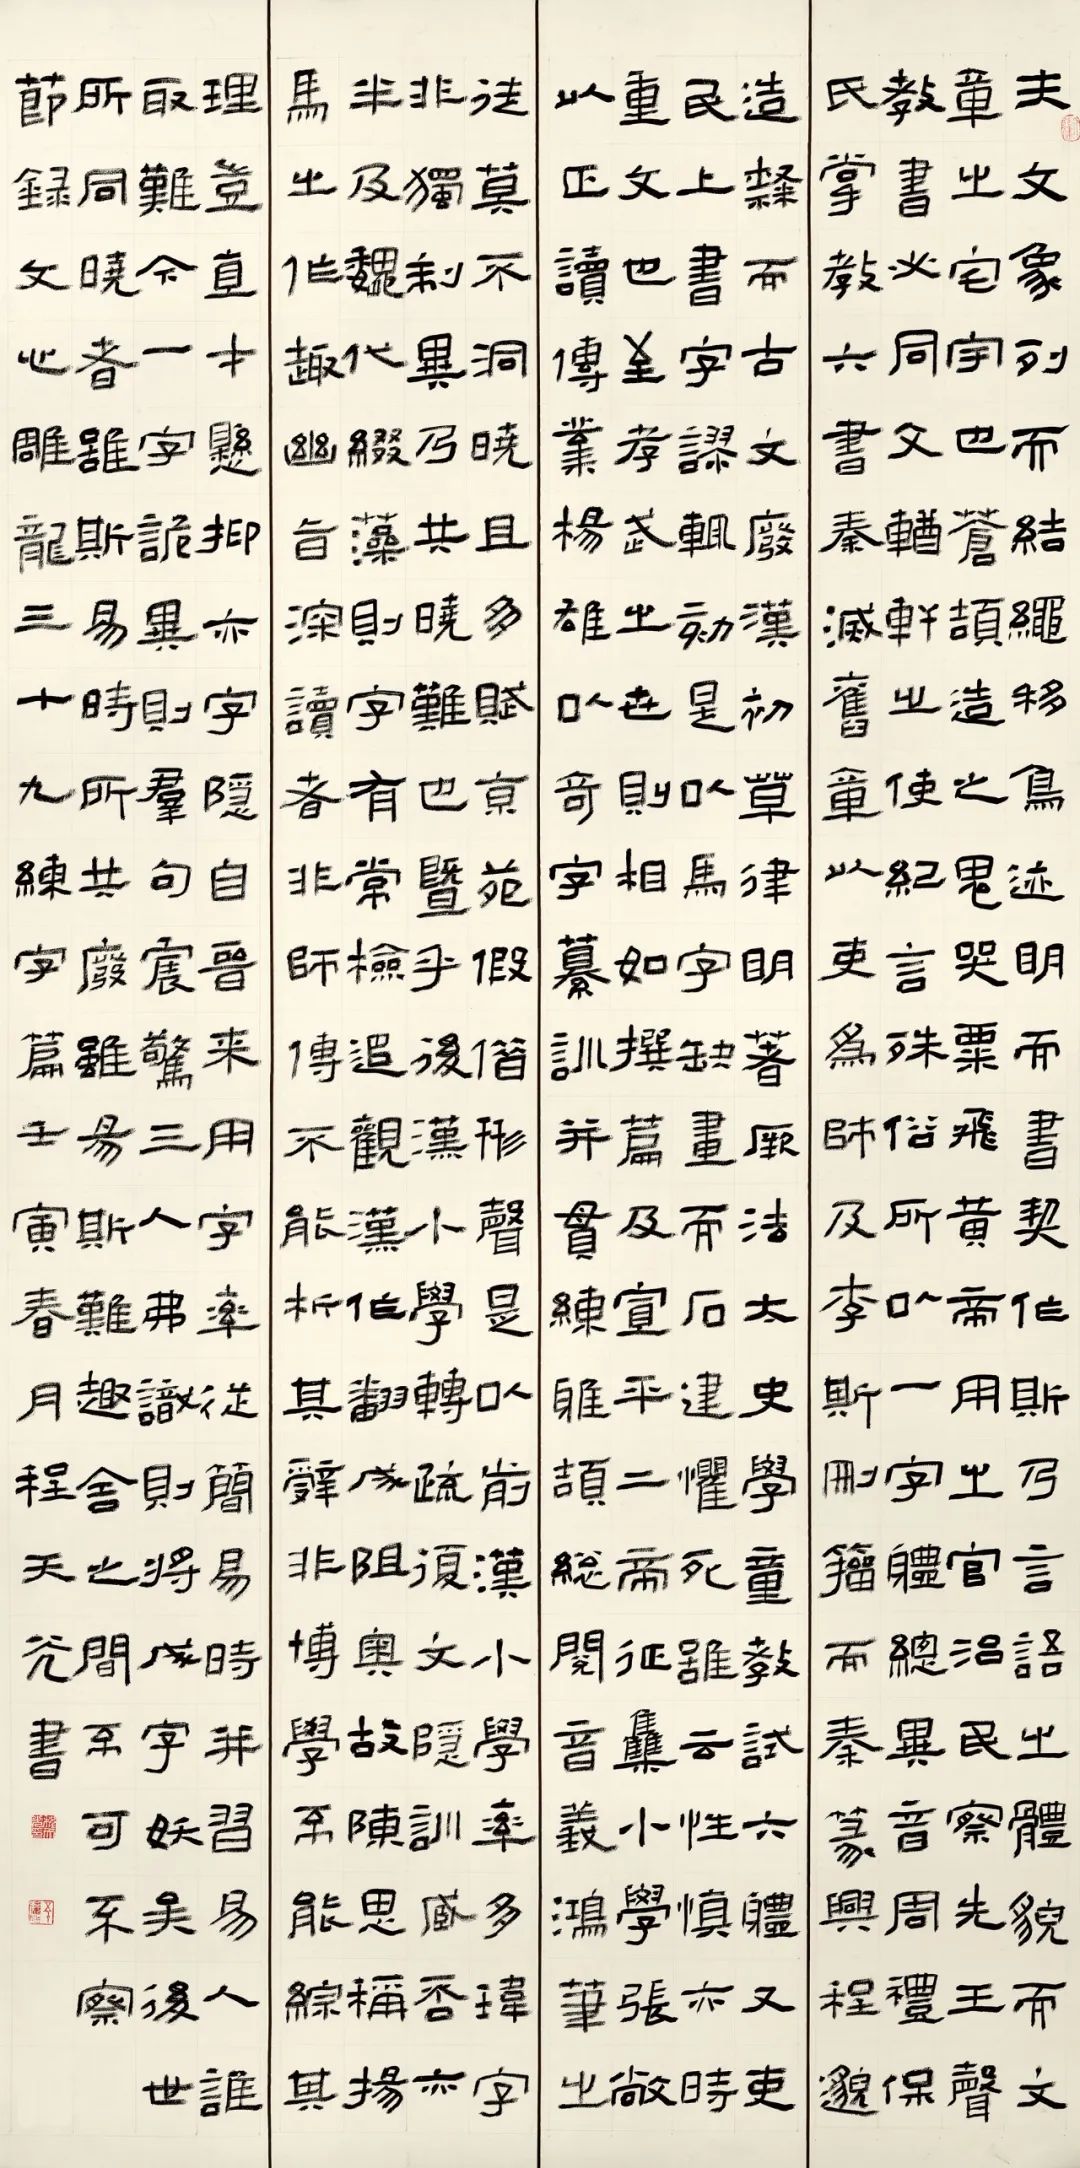 夫文象列而結繩移鳥迹明而書契作斯乃言語之體貌而文
章之宅宇也蒼頡造之鬼哭粟飛黃帝用之官治民察先王聲
教書必同文輶軒之使紀言殊俗所以一字體總異音周禮保
氏掌教六書秦滅舊章以吏為師及李斯刪籀而秦篆興程邈
造隸而古文廢漢初草律明著厥法太史學童教試六體又吏
民上書字謬輒劾是以馬字缺畫而石建懼死雖云性慎亦時
重文也至孝武之世則相如撰篇及宣平二帝征集小學張敞
以正讀傳業楊雄以奇字纂訓并貫練雅頡總閱音義鴻筆之
徒莫不洞曉且多賦京苑假借形聲是以前漢小學率多瑋字
非獨制異乃共曉難也暨乎後漢小學轉疏復文隱訓臧否亦
半及魏代綴藻則字有常檢追觀漢作翻成阻奧故陳思稱揚
馬之作趣幽旨深讀者非師傳不能析其辭非博學不能綜其
理豈直才懸抑亦字隱自晉来用字率從簡易時并習易人誰
取難今一字詭異則羣句震驚三人弗識則將成字妖矣後世
所同曉者雖斯易時所共廢雖易斯難趣舍之間不可不察
節録文心雕龍三十九練字篇壬寅春月程天光書